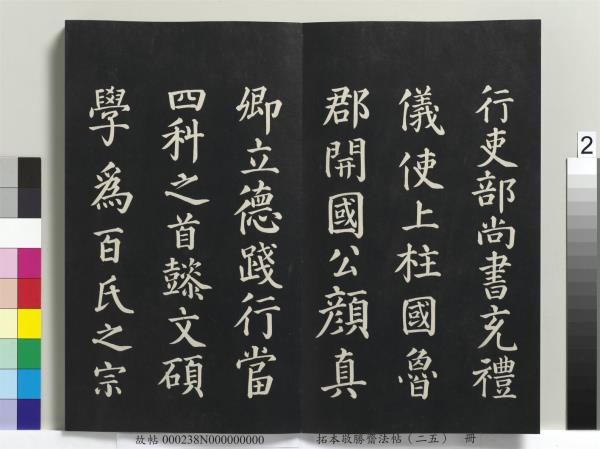 行吏部尚書充禮
儀使上柱國魯
郡開國公顏真
卿立德踐行當
四科之首懿文碩
學為百氏之宗
2
故帖 000238N000000000 拓本敬勝齋法帖（二五） 冊